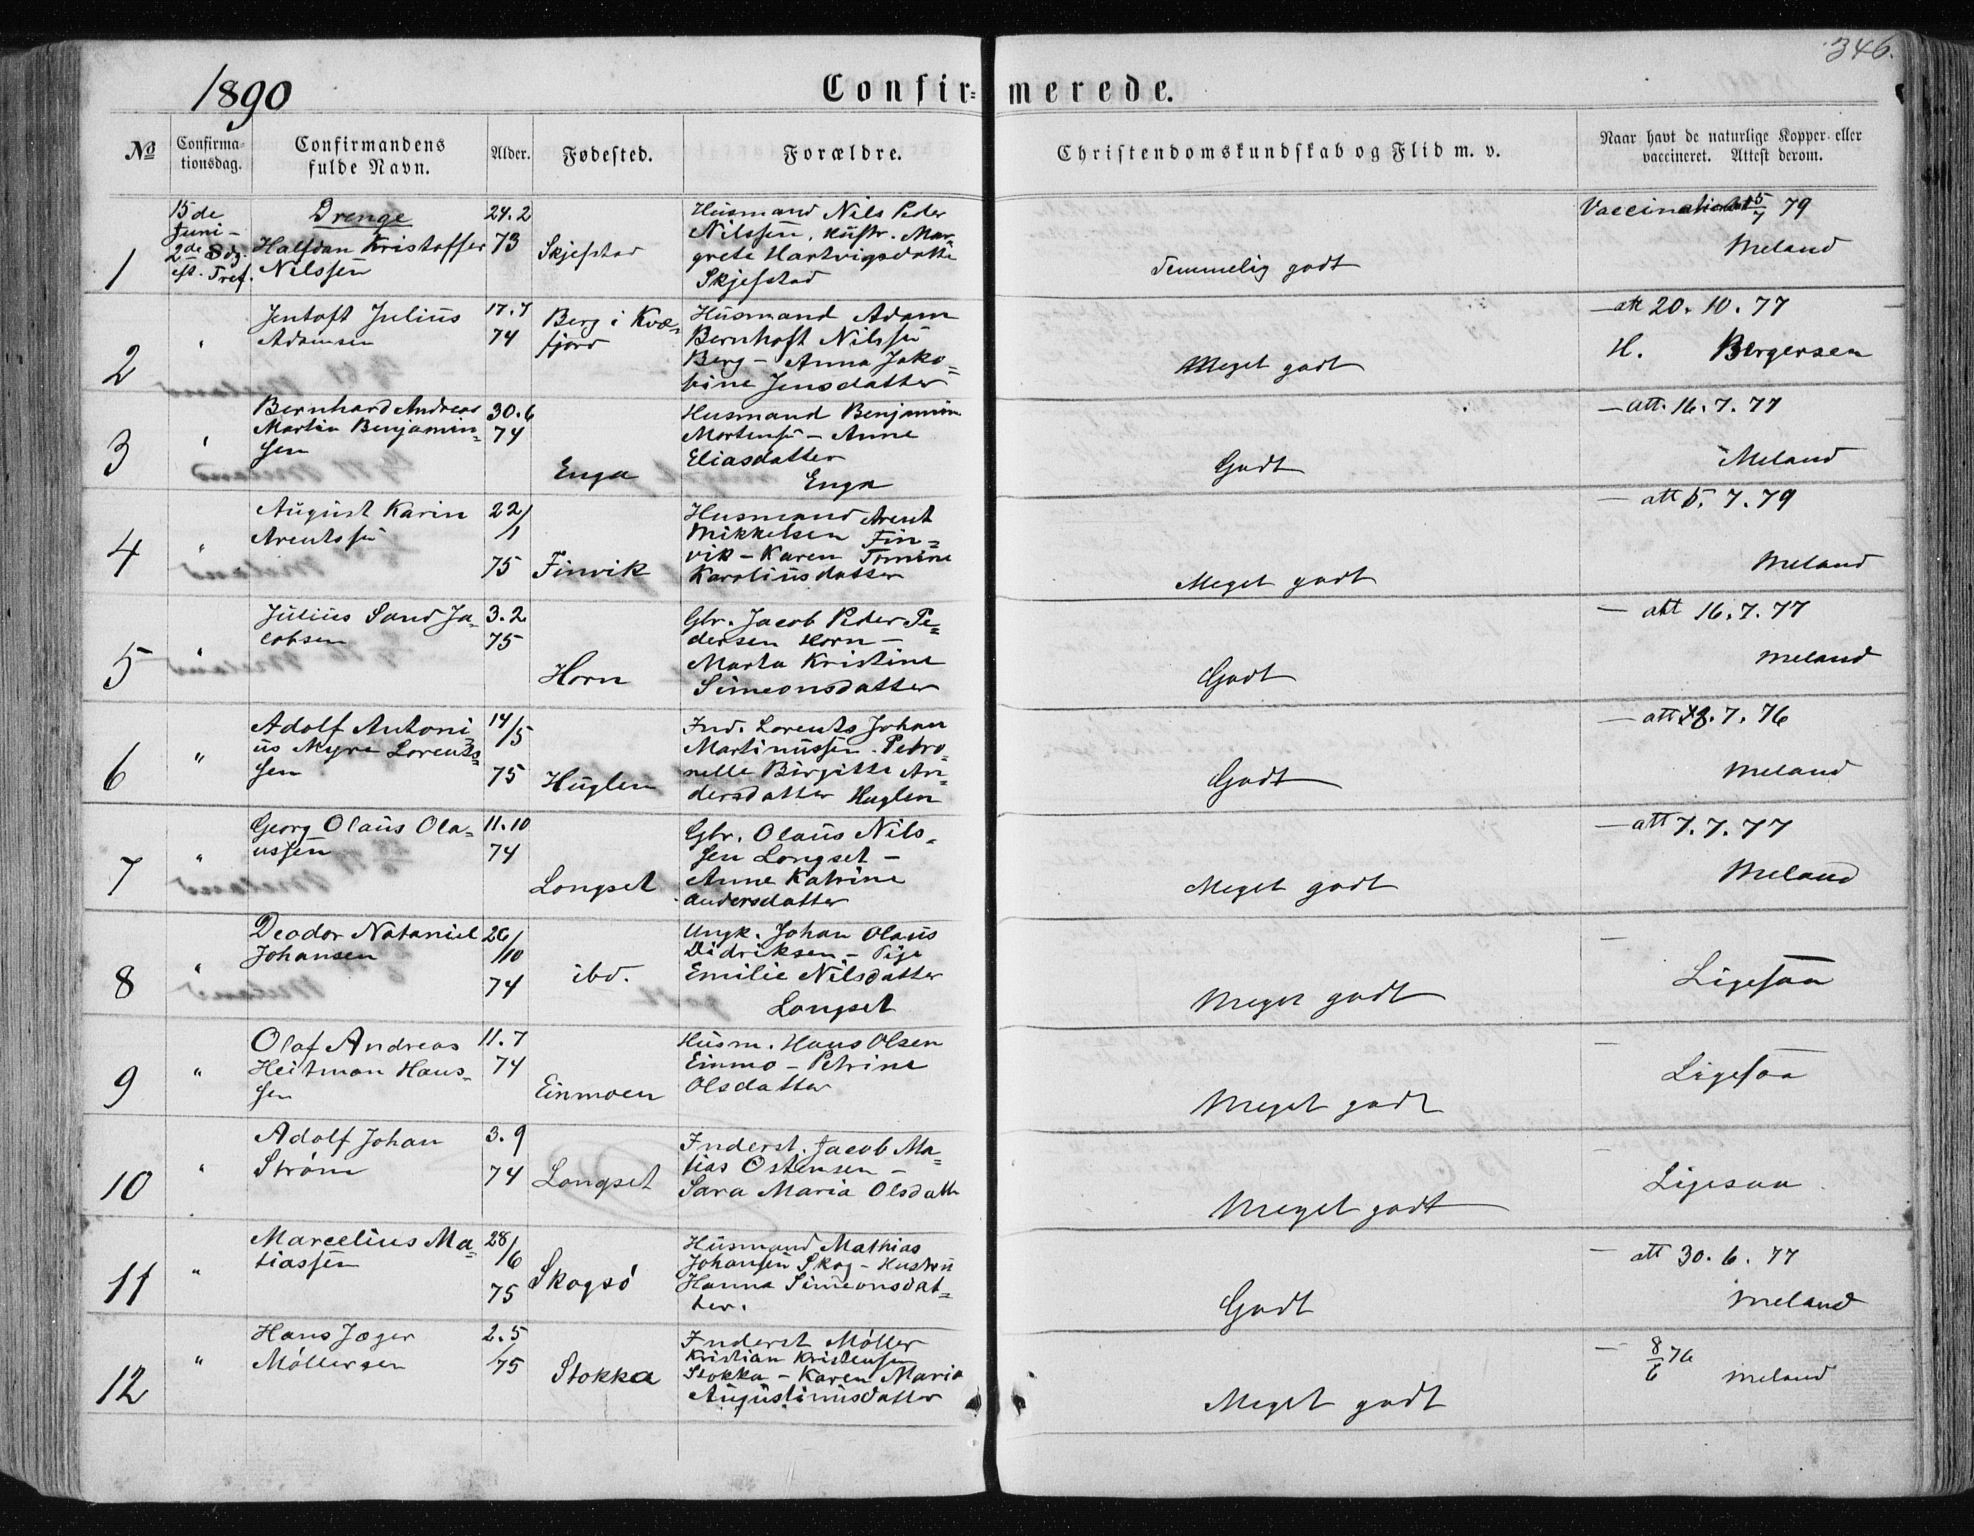 346.
1890
Confirmerede.
№
Confirmationsdag.
Confirmandens fulde Navn.
Alder.
Fødested.
Forældre.
Christendomskundskab og Flid m. v.
Naar havt de naturlige Kopper eller vaccineret. Attest derom.
1
15de
Juni -
2de Sdg.
eft. Tref.
Drenge
Halfdan Kristoffer
Nilssen
24.2
73
Skjefstad
Husmand Nils Peder
Nilssen, Hustr. Mar
grete Hartvigsdatte
Skjefstad
Temmelig godt
5/7 79
Meland
2
"
Jentoft Julius
Adamsen
17.7
74
Berg i Kvæ=
fjord
Husmand Adam
Bernhoft Nilssen
Berg - Anna Jako=
bine Jensdatter
Meget godt
- att 20. 10. 77
H. Bergersen
3
"
Bernhard Andreas
Martin Benjamin=
sen
30.6
74
Enga
Husmand Benjamin
Mortensen - Anne
Eliasdatter
Enga
Godt
- att. 16. 7. 77
Meland
4
"
August Karin
Arentssen
22/1
75
Finvik
Husmand Arent
Mikkelsen Fin=
vik - Karen Tomine
Karoliusdatter
Meget godt
- att 5. 7. 79
Meland
5
"
Julius Sand Ja=
cobsen
3.2
75
Horn
Gbr. Jacob Peder Pe=
dersen Horn -
Marta Kristine
Simeonsdatter
Godt
- att 16. 7. 77
Meland
6
"
Adolf Antoni
us Myre Lorents=
sen
14/5
75
Huglen
Ind. Lorents Johan
Martinussen - Petro=
nelle Birgitte An
dersdatter Huglen
Godt
- att 18. 7. 76
Meland
7
"
Georg Olaus Ola=
ussen
11.10
74
Longset
Gbr. Olaus Nils=
sen Longset -
Anne Katrine
Andersdatter
Meget godt
- att 7. 7. 77
Meland
8
"
Deodor Nataniel
Johansen
26/10
74
ibd.
Ungk. Johan Olaus
Didriksen - Pige
Emilie Nilsdatter
Longset
Meget godt
- Ligesaa
9
"
Olaf Andreas
Heitman Hans=
sen
11.7
74
Einmoen
Husm. Hans Olsen
Einmo - Petrine
Olsdatter
Meget godt
- Ligesaa
10
"
Adolf Johan
Strøm
3.9
74
Longset
Inderst. Jacob Ma=
tias Ostensen -
Sara Maria Olsdattr
Meget godt
- Ligesaa
11
"
Marcelius Ma=
tiassen
28/6
75
Skogsö
Husmand Mathias
Johansen Skog - Hustru
Hanna Simeonsdat=
ter.
Godt
- att 30. 6. 77
Meland
12
"
Hans Jæger
Möllersen
2.5
75
Stokka
Inderst Möller
Kristian Kristensen
Stokka - Karen Maria
Augustinusdatter
Meget godt
- 8/6 76
Meland